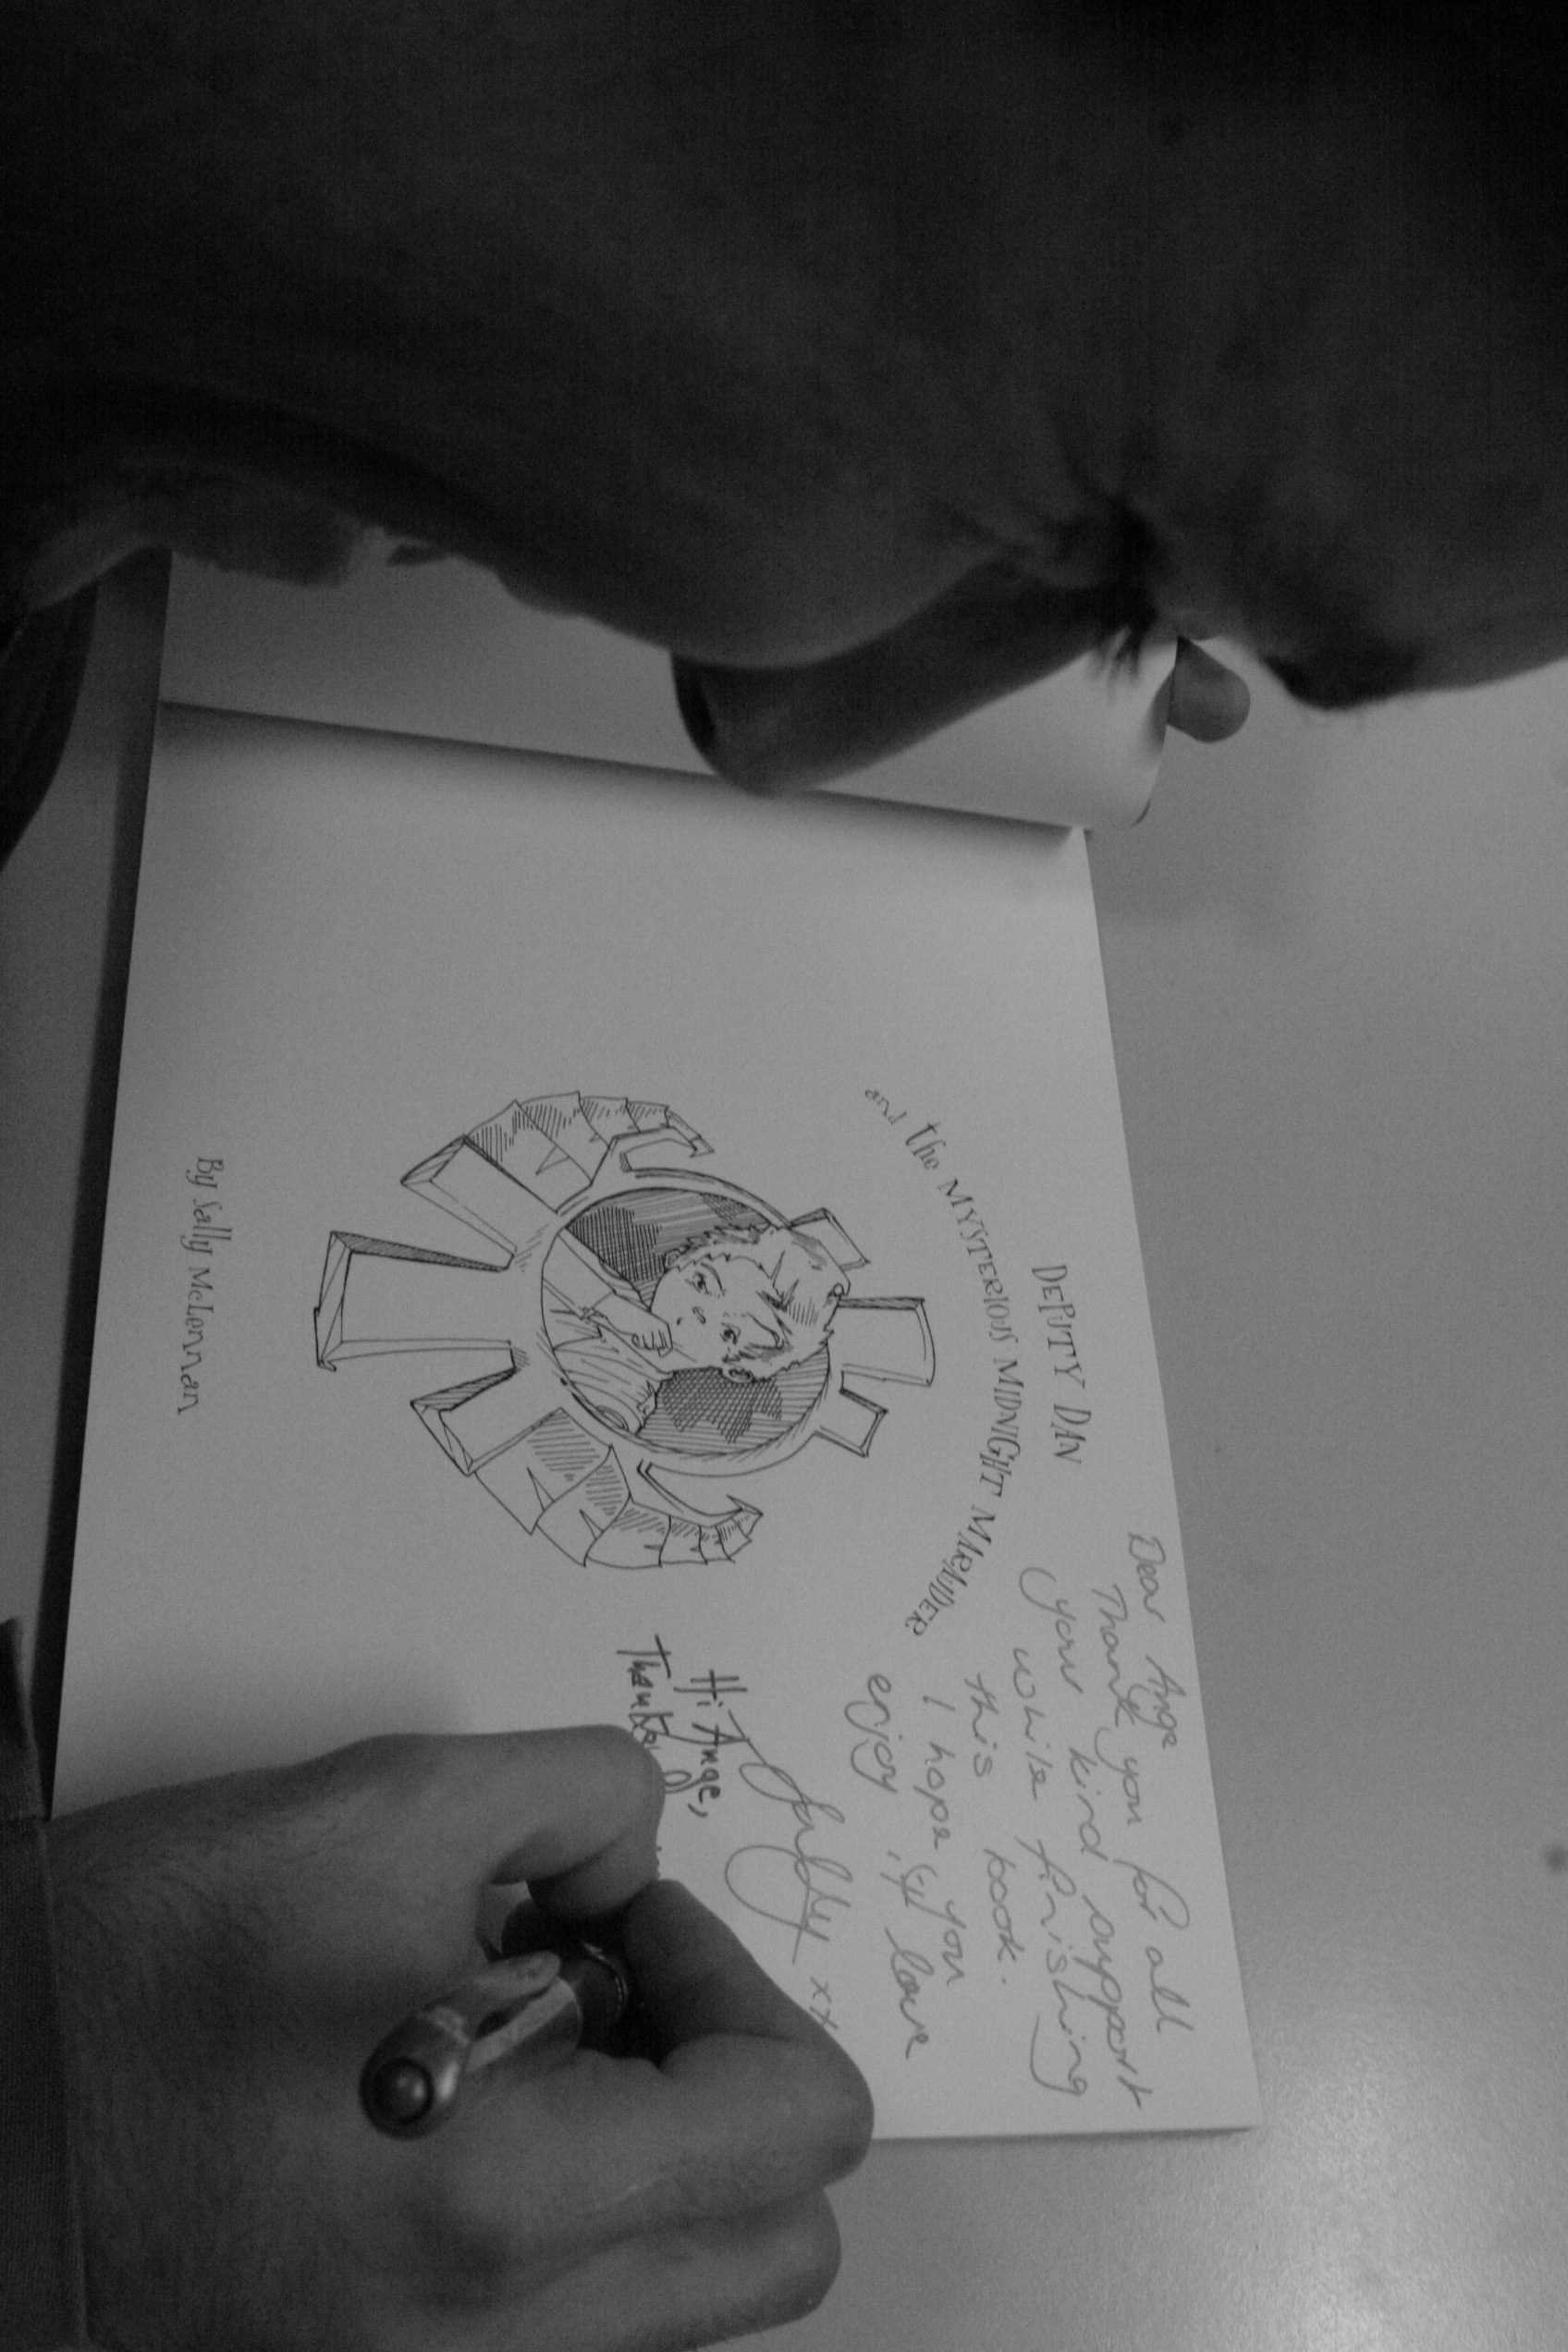 DEPUTY DAN
and the MYSTERIOUS MIDNIGHT MARAUDER
By Sally McLennan
Dear Ange
Thank you for all
your kind support
while finishing
this book.
I hope you
enjoy love
Sally xx
Hi Ange,
Thanks